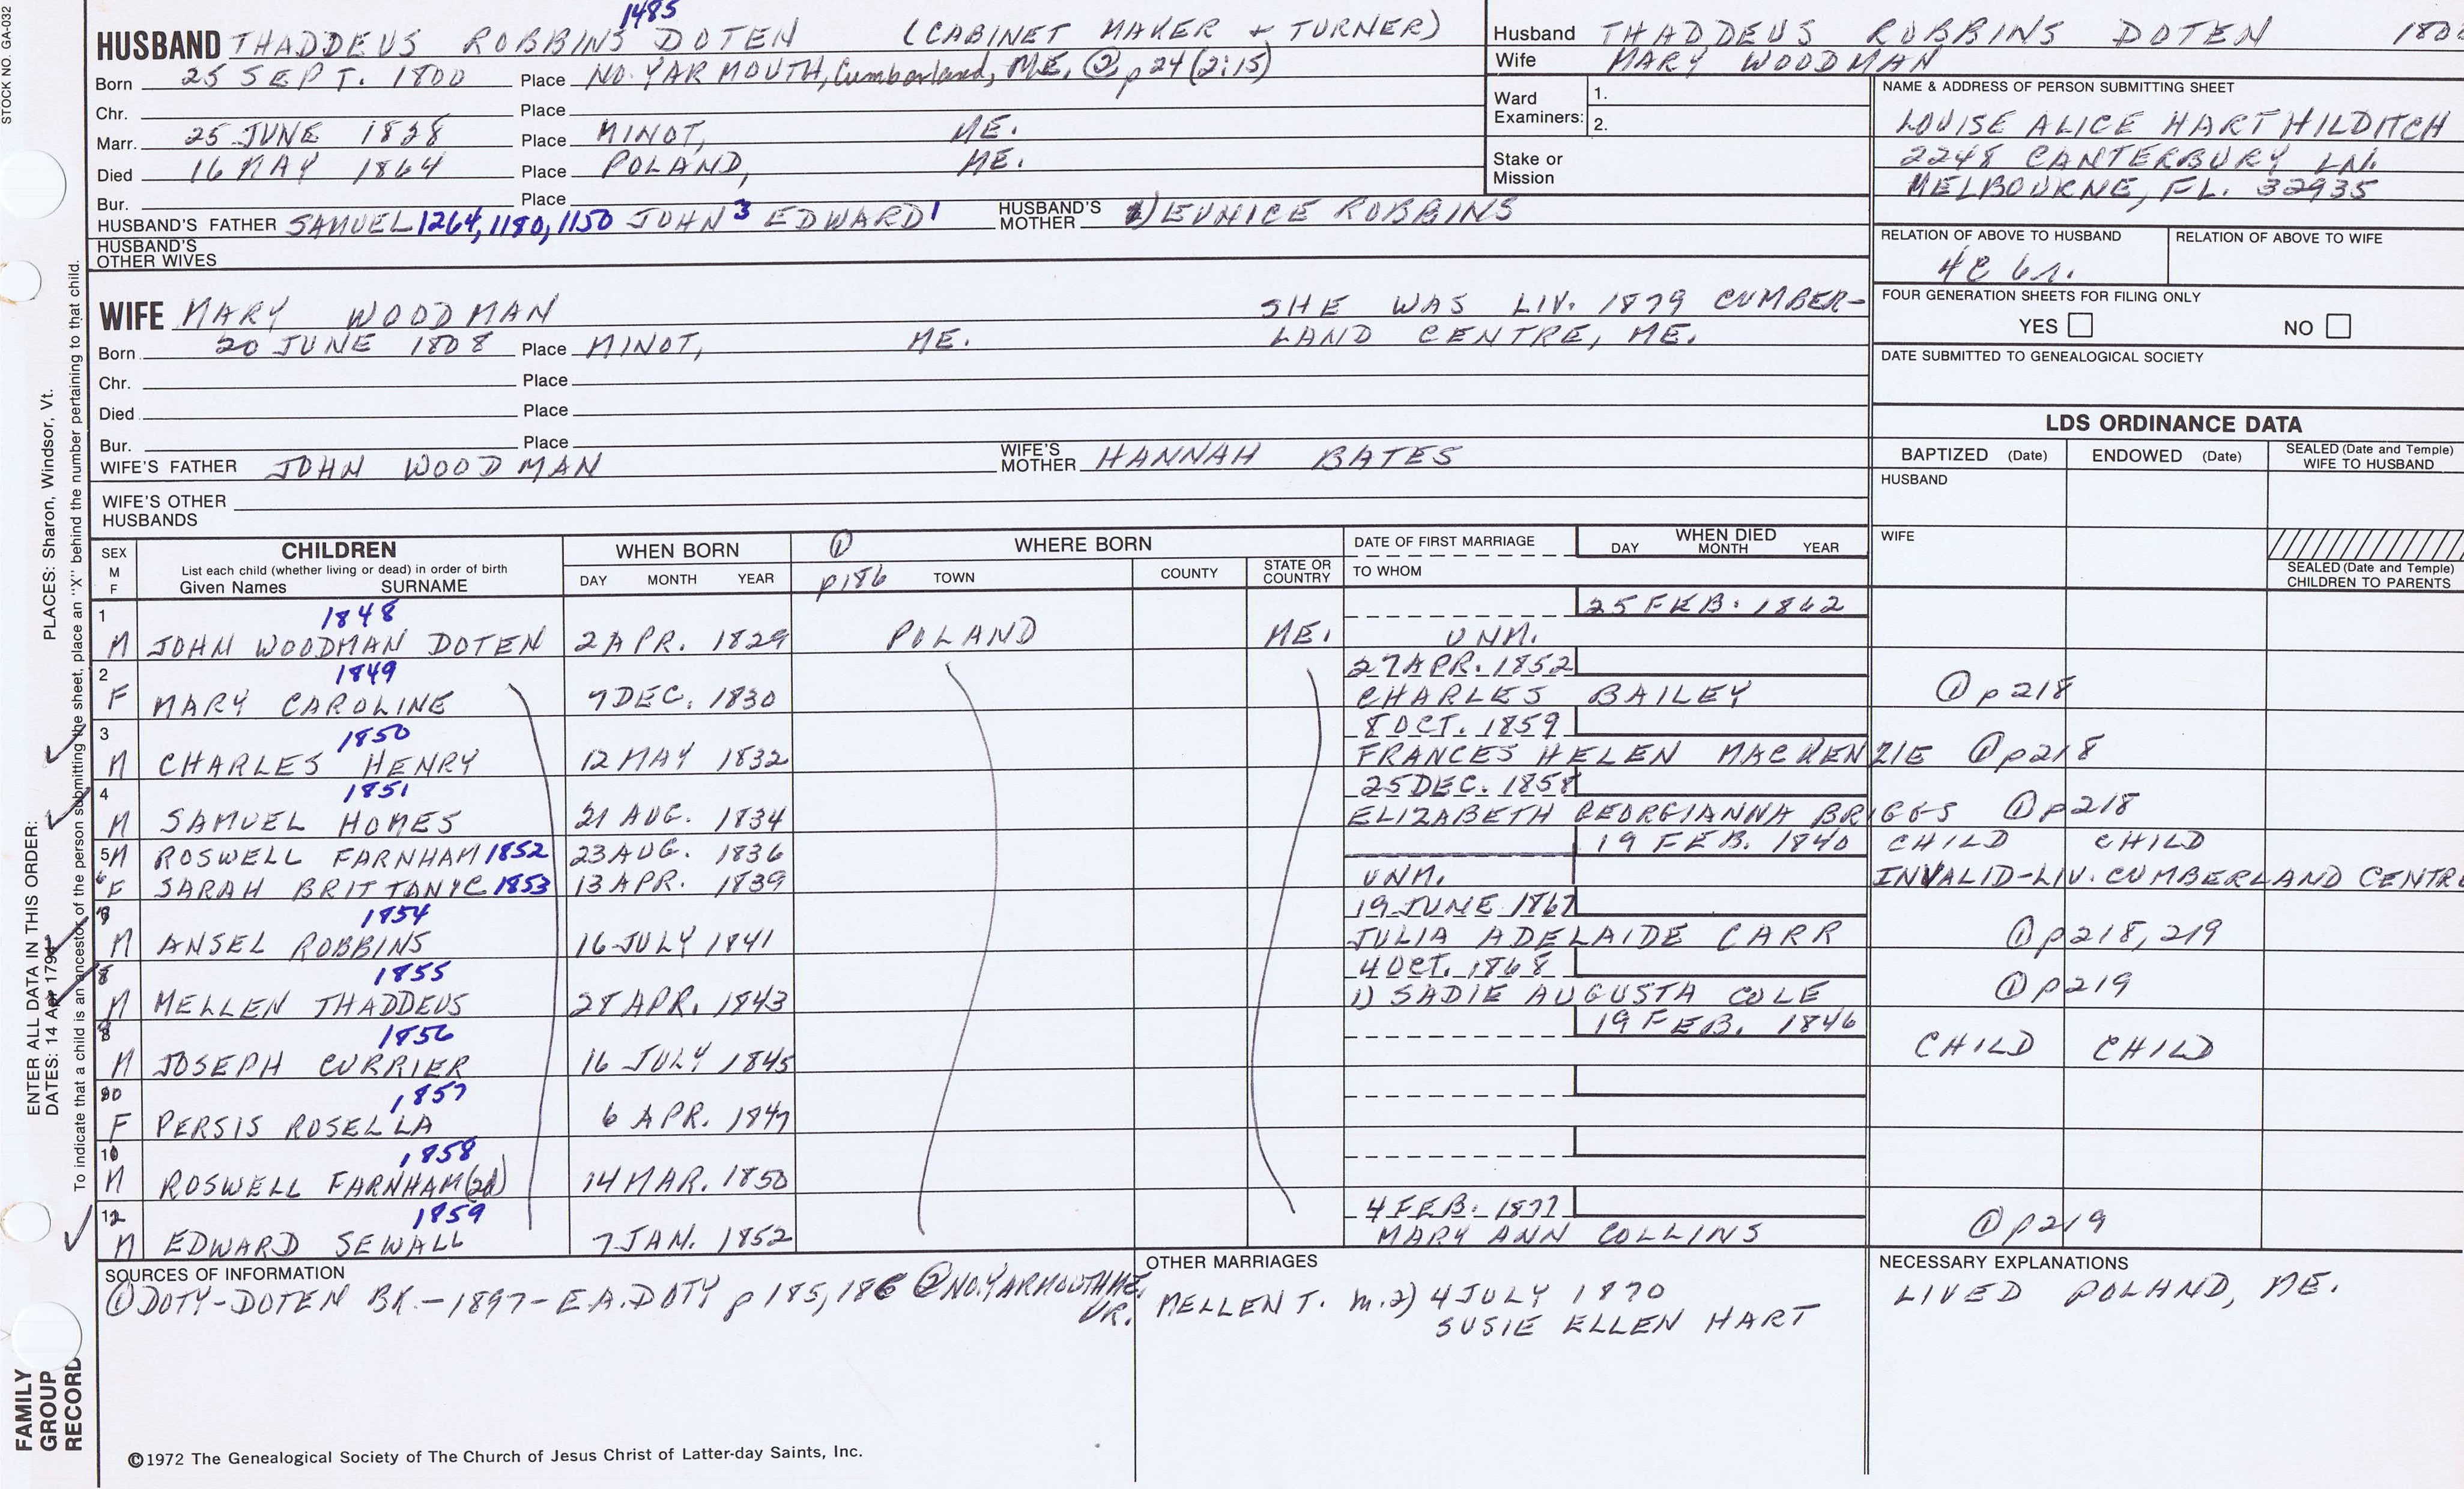 STOCK NO. GA-032
1485
HUSBAND THADDEUS ROBBINS DOTEN (CABINET MAKER + TURNER)
Born 25 SEPT. 1800 Place NO. YARMOUTH, Cumberland, ME. ② p24 (2:15)
Chr. Place
Marr. 25 JUNE 1828 Place MINOT, ME.
Died 16 MAY 1864 Place POLAND, ME.
Bur. Place
HUSBAND'S FATHER SAMUEL 1264, 1180, 1150 JOHN 3 EDWARD 1 HUSBAND'S MOTHER 2) EUNICE ROBBINS
HUSBAND'S OTHER WIVES
Husband THADDEUS ROBBINS DOTEN
Wife MARY WOODMAN
Ward Examiners: 1.
2.
Stake or Mission
NAME & ADDRESS OF PERSON SUBMITTING SHEET
LOUISE ALICE HART HILDITCH
2248 CANTERBURY LN.
MELBOURNE, FL. 32935
RELATION OF ABOVE TO HUSBAND RELATION OF ABOVE TO WIFE
4C 6r.
FOUR GENERATION SHEETS FOR FILING ONLY
YES NO
DATE SUBMITTED TO GENEALOGICAL SOCIETY
WIFE MARY WOODMAN SHE WAS LIV. 1879 CUMBER-
Born 20 JUNE 1808 Place MINOT, ME. LAND CENTRE, ME.
Chr. Place
Died Place
Bur. Place
WIFE'S FATHER JOHN WOODMAN WIFE'S MOTHER HANNAH BATES
WIFE'S OTHER HUSBANDS
LDS ORDINANCE DATA
BAPTIZED (Date) ENDOWED (Date) SEALED (Date and Temple) WIFE TO HUSBAND
HUSBAND
WIFE
SEALED (Date and Temple) CHILDREN TO PARENTS
SEX M F
CHILDREN
List each child (whether living or dead) in order of birth
Given Names SURNAME
WHEN BORN
DAY MONTH YEAR
① p186
WHERE BORN
TOWN COUNTY STATE OR COUNTRY
DATE OF FIRST MARRIAGE
TO WHOM
WHEN DIED
DAY MONTH YEAR
1 1848 25 FEB. 1862
M JOHN WOODMAN DOTEN 2 APR. 1829 POLAND ME. UNM.
2 1849 27 APR. 1852
F MARY CAROLINE 7 DEC. 1830 CHARLES BAILEY ① p218
3 1850 8 OCT. 1859
M CHARLES HENRY 12 MAY 1832 FRANCES HELEN MACKENZIE ① p218
4 1851 25 DEC. 1858
M SAMUEL HOMES 21 AUG. 1834 ELIZABETH GEORGIANNA BRIGGS ① p218
5 M ROSWELL FARNHAM 1852 23 AUG. 1836 19 FEB. 1840 CHILD CHILD
6 F SARAH BRITTANIC 1853 13 APR. 1839 UNM. INVALID-LIV. CUMBERLAND CENTRE
7 1854 19 JUNE 1867
M ANSEL ROBBINS 16 JULY 1841 JULIA ADELAIDE CARR ① p218, 219
8 1855 4 OCT. 1868
M MELLEN THADDEUS 28 APR. 1843 1) SADIE AUGUSTA COLE ① p219
9 1856 19 FEB. 1846
M JOSEPH CURRIER 16 JULY 1845 CHILD CHILD
10 1857
F PERSIS ROSELLA 6 APR. 1847
1858
M ROSWELL FARNHAM (2d) 14 MAR. 1850
12 1859 4 FEB. 1877
M EDWARD SEWALL 7 JAN. 1852 MARY ANN COLLINS ① p219
SOURCES OF INFORMATION
① DOTY-DOTEN BK.-1897-E.A. DOTY p 185, 186 ② NO. YARMOUTH ME. VR.
OTHER MARRIAGES
MELLEN T. m. 2) 4 JULY 1870
SUSIE ELLEN HART
NECESSARY EXPLANATIONS
LIVED POLAND, ME.
©1972 The Genealogical Society of The Church of Jesus Christ of Latter-day Saints, Inc.
FAMILY GROUP RECORD
ENTER ALL DATA IN THIS ORDER:
DATES: 14 Apr 1794
PLACES: Sharon, Windsor, Vt.
To indicate that a child is an ancestor of the person submitting the sheet, place an "X" behind the number pertaining to that child.